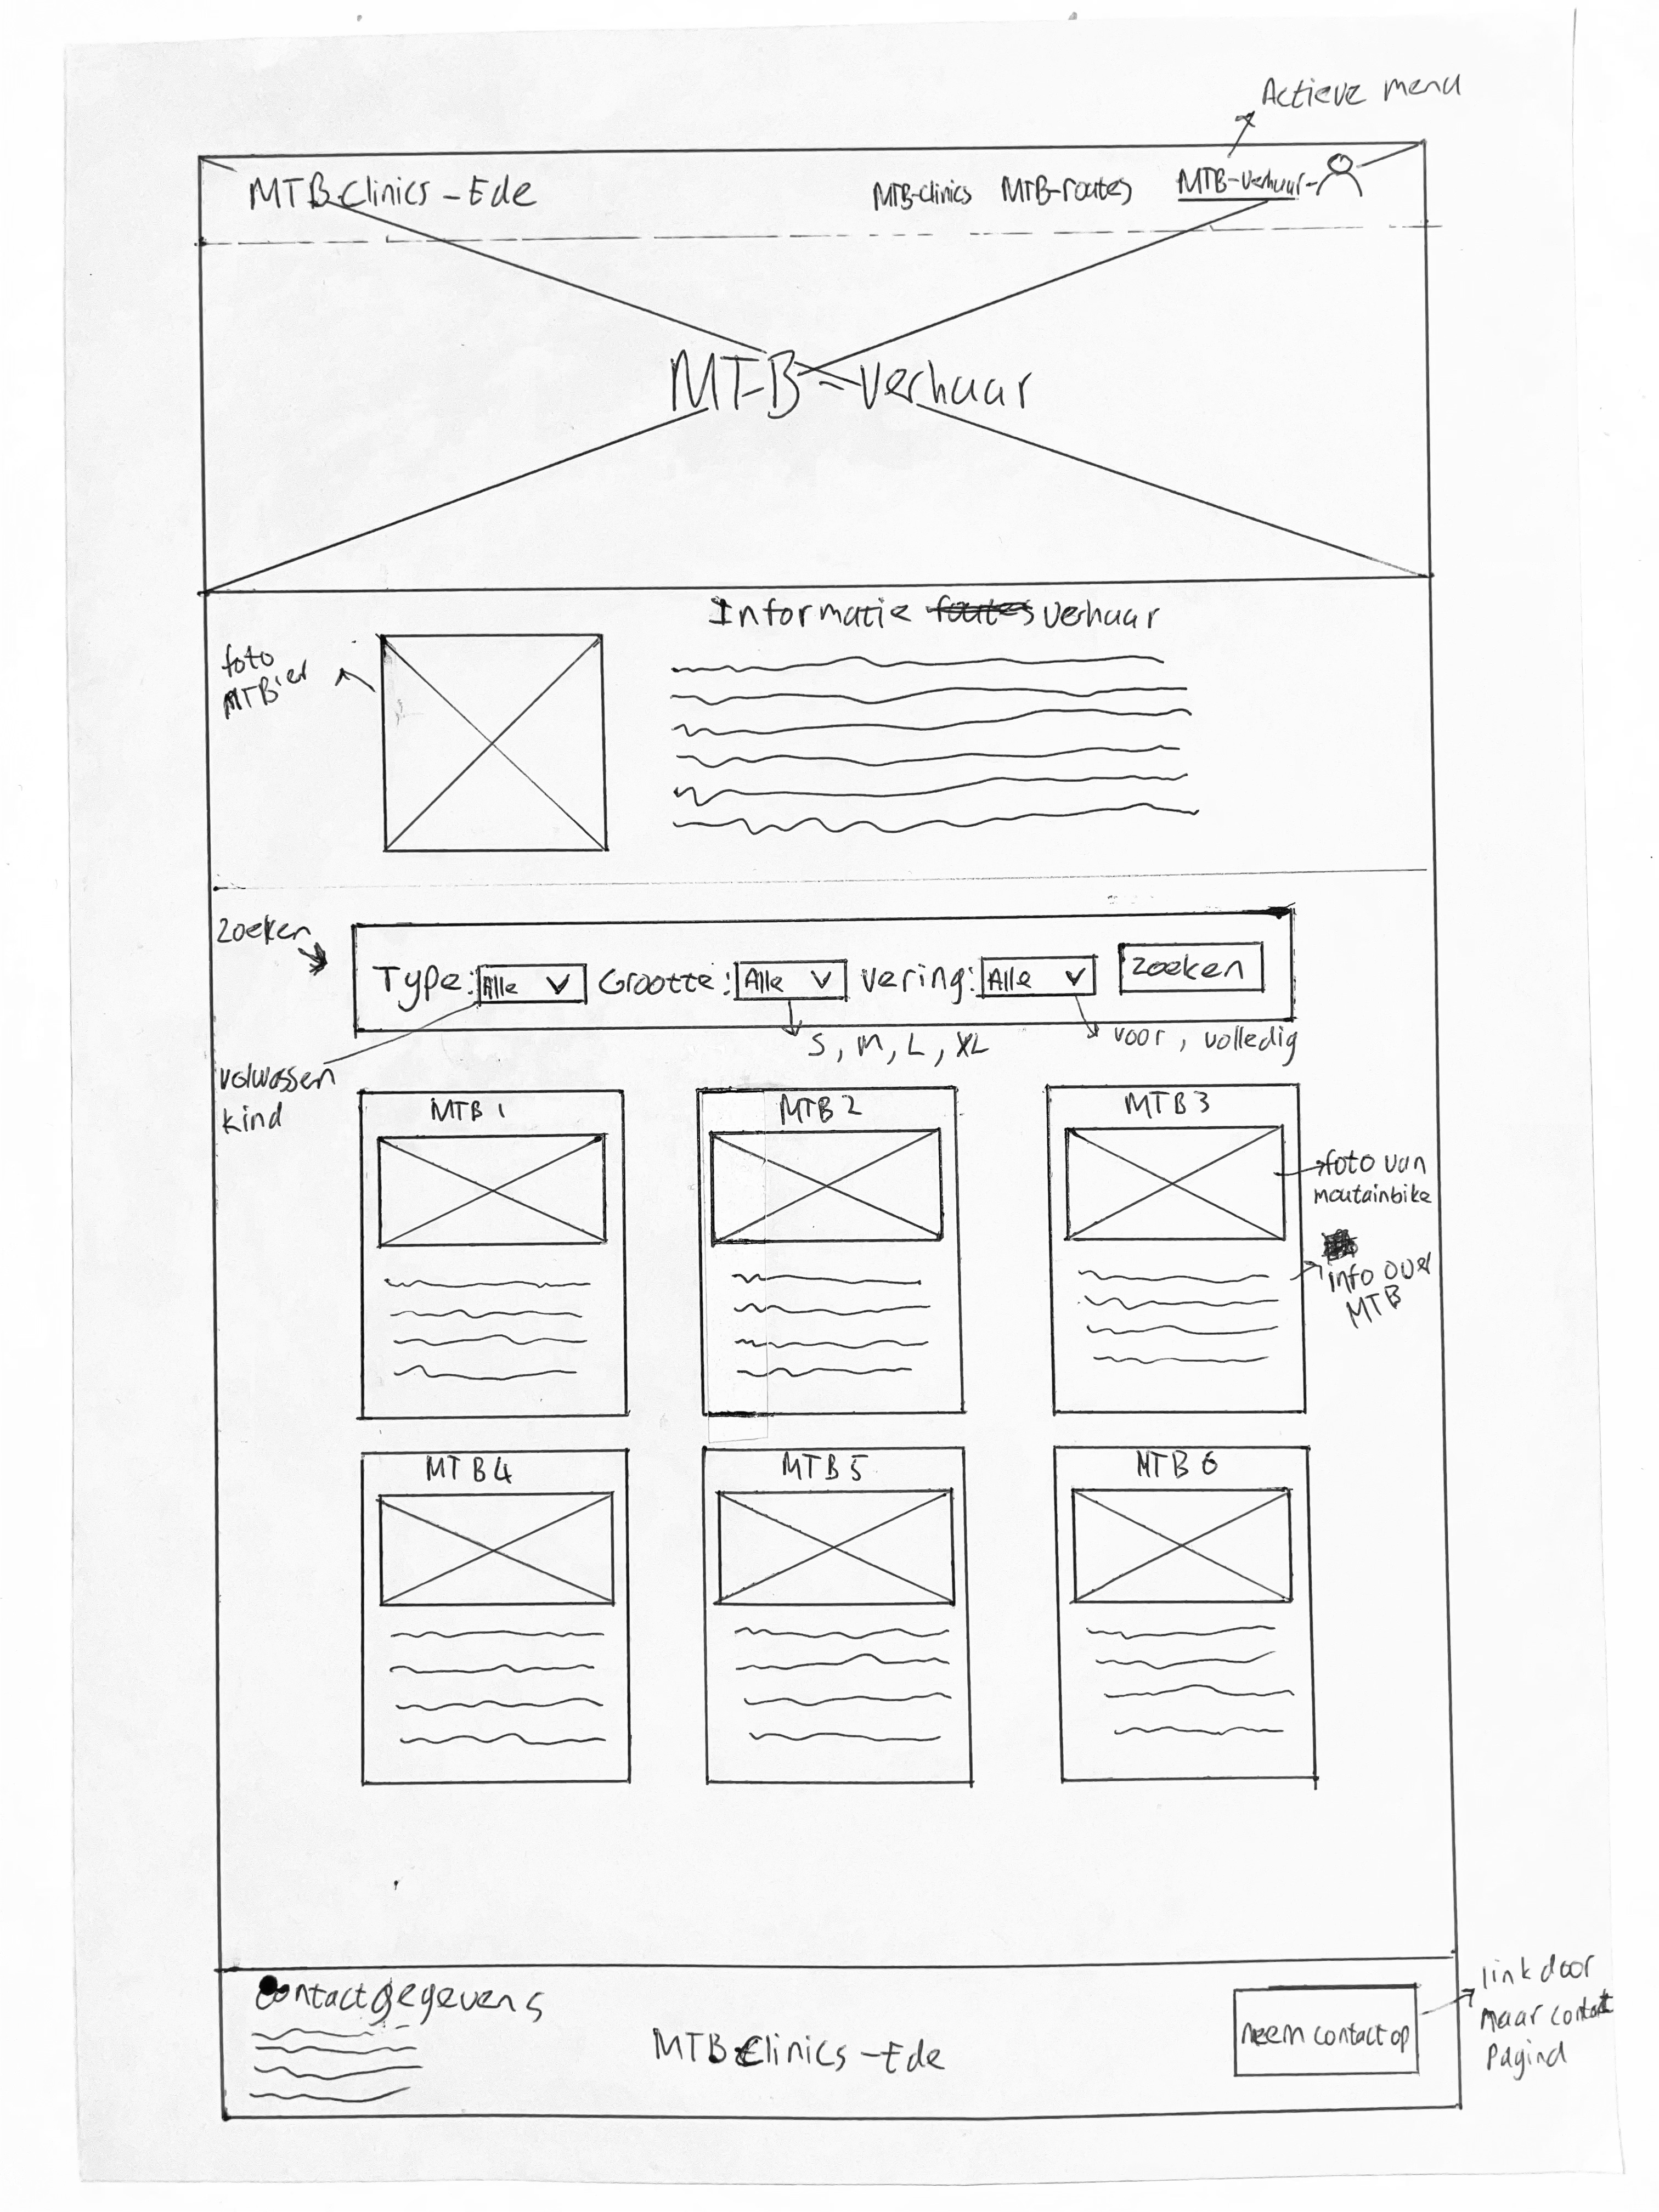 Actieve menu
MTB-Clinics-Ede
MTB-Clinics MTB-routes MTB-verhuur
MTB-verhuur
Informatie routes verhuur
foto
MTB'er
zoeken
Type: Alle Grootte: Alle Vering: Alle zoeken
S, M, L, XL
voor, volledig
volwassen
kind
MTB 1
MTB 2
MTB 3
foto van
moutainbike
info over
MTB
MTB 4
MTB 5
MTB 6
Contactgegevens
MTB-Clinics-Ede
neem contact op
link door
naar contact
pagina